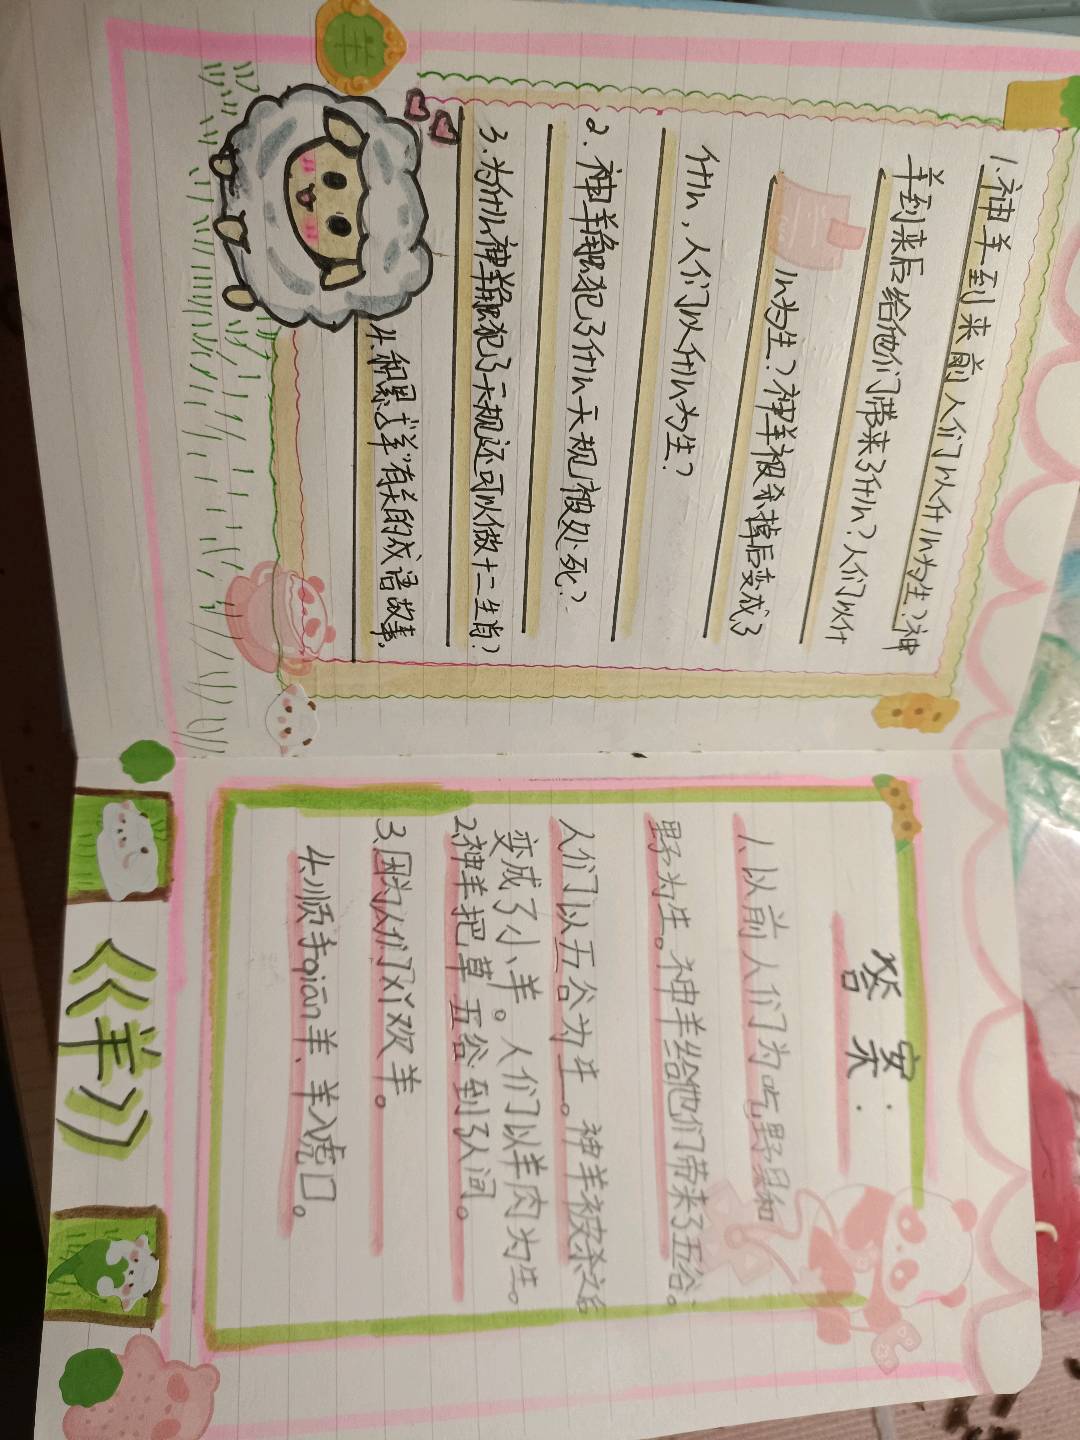 1.神羊到来前人们以什么为生?神
羊到来后给他们带来了什么?人们以什
么为生?神羊被杀掉后变成了
什么,人们以什么为生?
2.神羊触犯了什么天规被处死?
3.为什么神羊触犯了天规还可以做十二生肖?
4.积累与“羊”有关的成语故事.
羊
答案:
1.以前人们为吃野果和
野为生。神羊给他们带来了五谷。
人们以五谷为生。神羊被杀之后
变成了小羊。人们以羊肉为生。
2.神羊把草五谷到了人间。
3.因为人们xǐ欢羊。
4.顺手qiān羊、羊入虎口。
《羊》